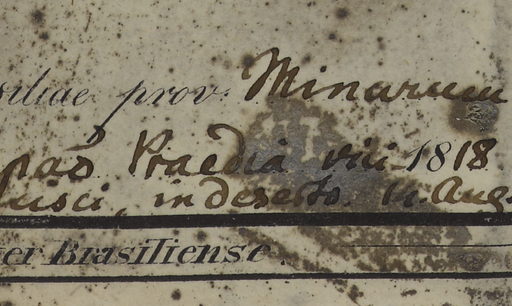 siliae prov. Minarum
pas Praedia viii 1818
in deserto. 11. Aug.
er Brasiliense.